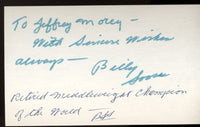 To Jeffrey Morey -
With Sincere Wishes
always - Billy
Soose
Retired Middleweight Champion
of the World -